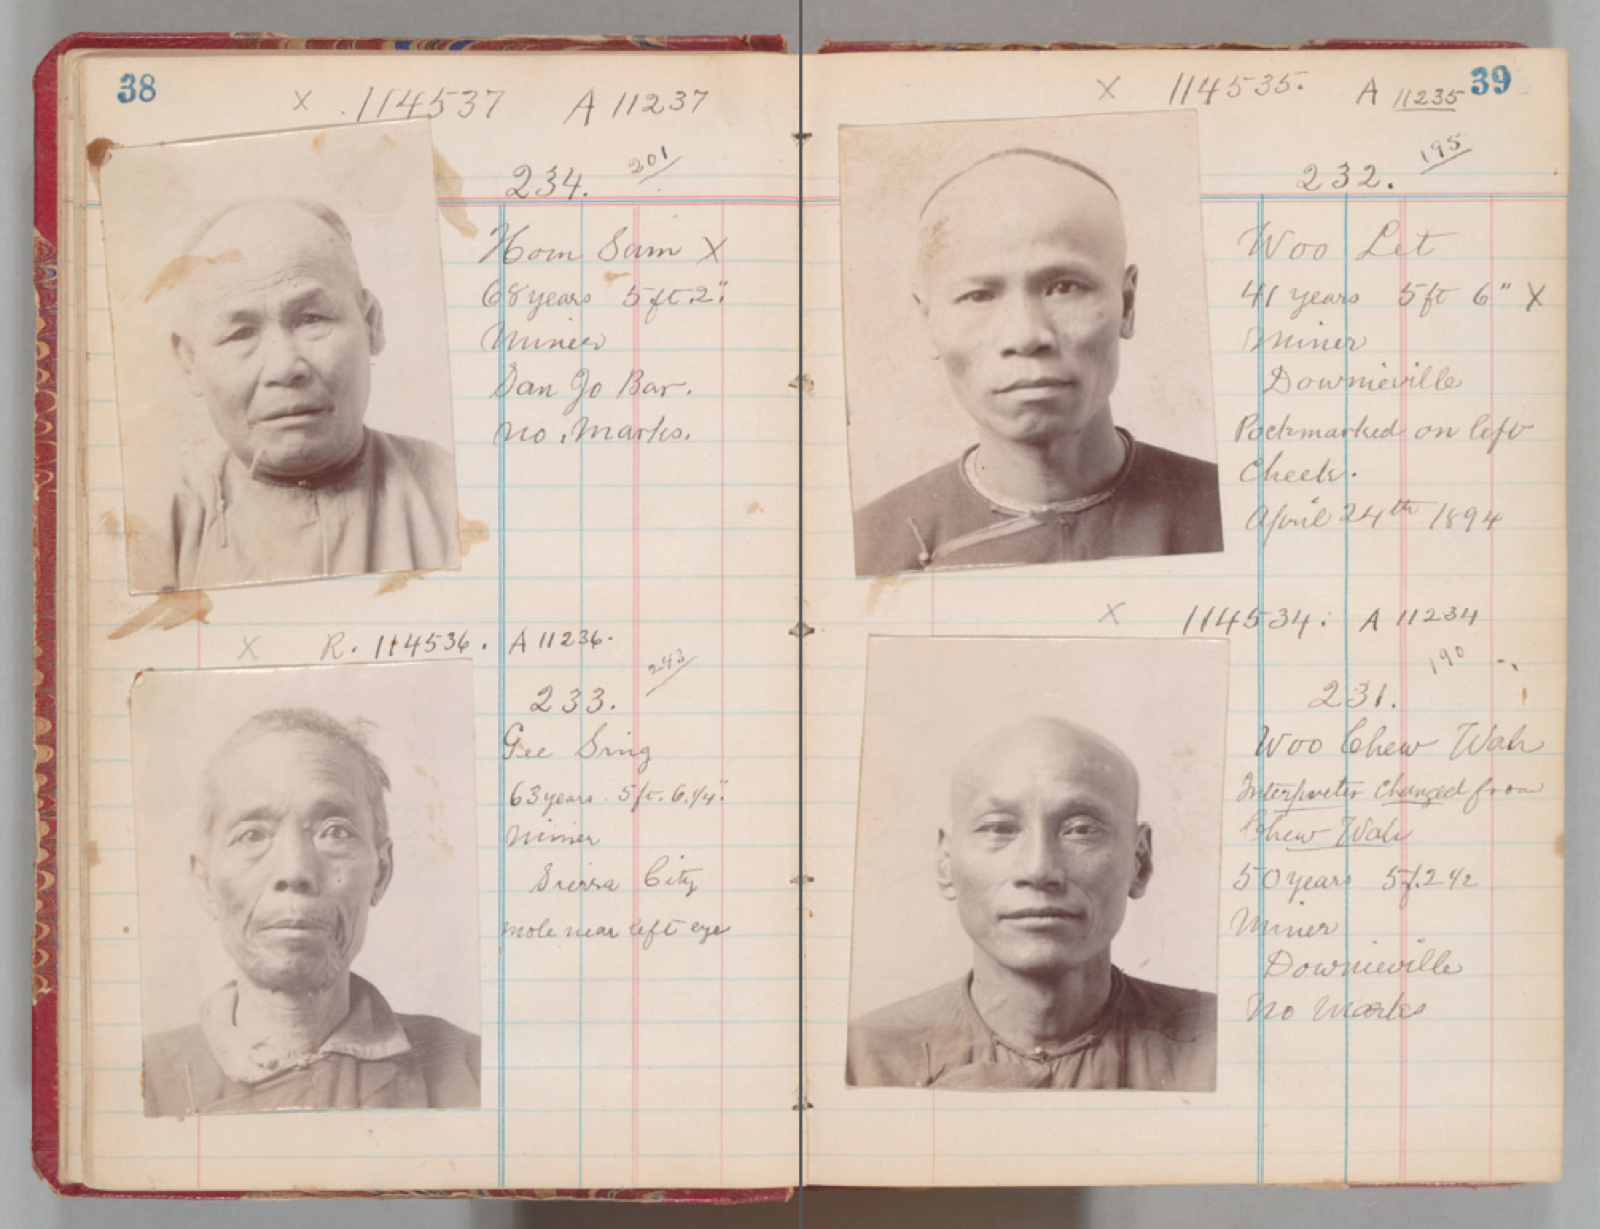 38
X .114537 A 11237
234. 201
Hom Sam X
68 years 5 ft. 2"
Miner
San Jo Bar.
No. Marks.
X R. 114536. A 11236.
243
233.
Gee Sing
63 years. 5 ft. 6.1/4."
Miner
Sierra City
mole near left eye
39
X 114535. A 11235
195
232.
Woo Let
41 years 5 ft 6" X
Miner
Downieville
Pockmarked on left
cheek.
April 24th 1894
X 114534. A 11234
190
231.
Woo Chew Wah
Interpreter changed from
Chew Wah
50 years 5 f. 2 1/2
Miner
Downieville
No marks